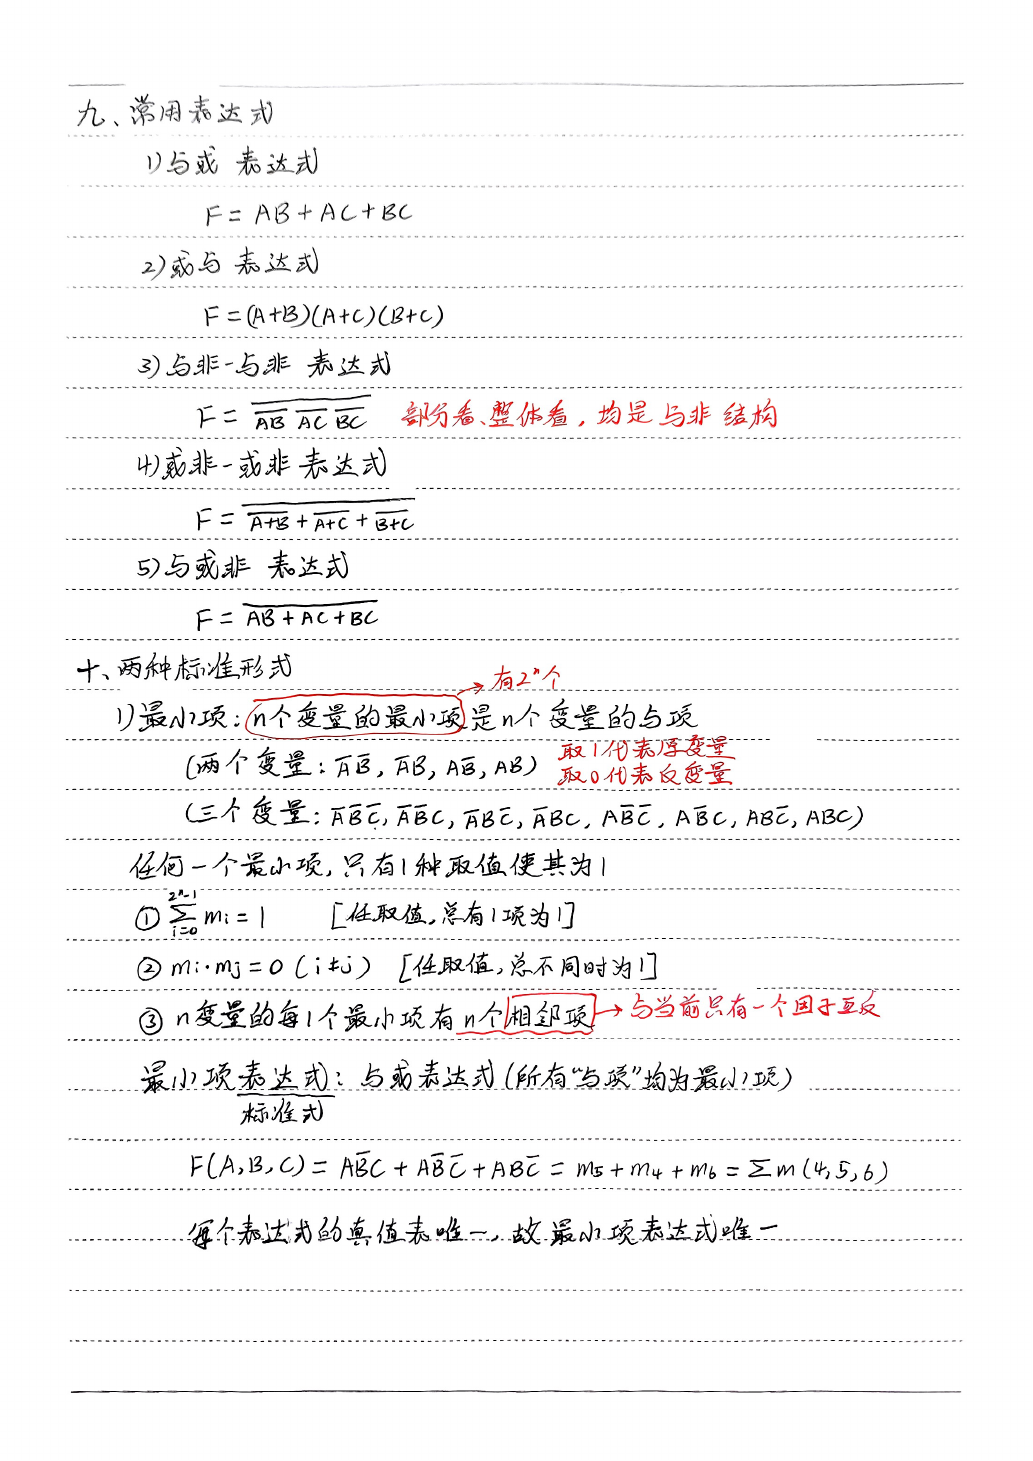 九、常用表达式
1)与或 表达式
F = AB + AC + BC
2)或与 表达式
F = (A+B)(A+C)(B+C)
3)与非-与非 表达式
F = \overline{\overline{AB} \overline{AC} \overline{BC}} 部分看、整体看，均是 与非 结构
4)或非-或非 表达式
F = \overline{\overline{A+B} + \overline{A+C} + \overline{B+C}}
5)与或非 表达式
F = \overline{AB + AC + BC}
十、两种标准形式
有2ⁿ个
1)最小项：n个变量的最小项是n个变量的与项
(两个变量: A̅B̅, A̅B, AB̅, AB) 取1代表原变量
取0代表反变量
(三个变量: A̅B̅C̅, A̅B̅C, A̅BC̅, A̅BC, AB̅C̅, AB̅C, ABC̅, ABC)
任何一个最小项，只有1种取值使其为1
① \sum_{i=0}^{2ⁿ-1} mᵢ = 1 [任取值，总有1项为1]
② mᵢ·mⱼ = 0 (i≠j) [任取值，总不同时为1]
③ n变量的每1个最小项有n个相邻项→与当前只有一个因子互反
最小项表达式：与或表达式(所有“与项”均为最小项)
标准式
F(A,B,C) = AB̅C + AB̅C̅ + ABC̅ = m₅ + m₄ + m₆ = Σm(4,5,6)
每个表达式的真值表唯一，故最小项表达式唯一